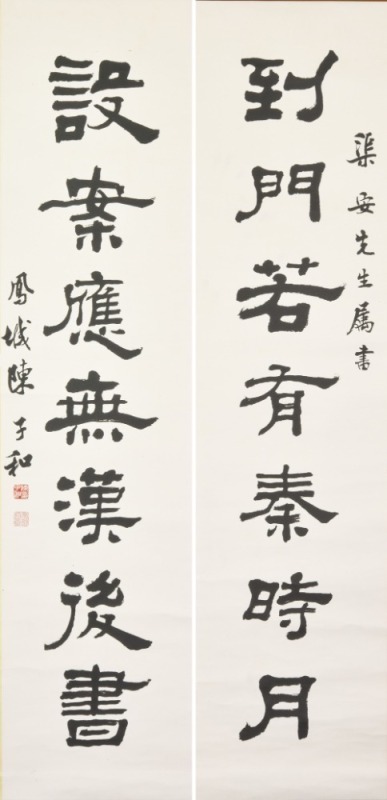 渠安先生屬書
到門若有秦時月
設案應無漢後書
鳳城陳子和